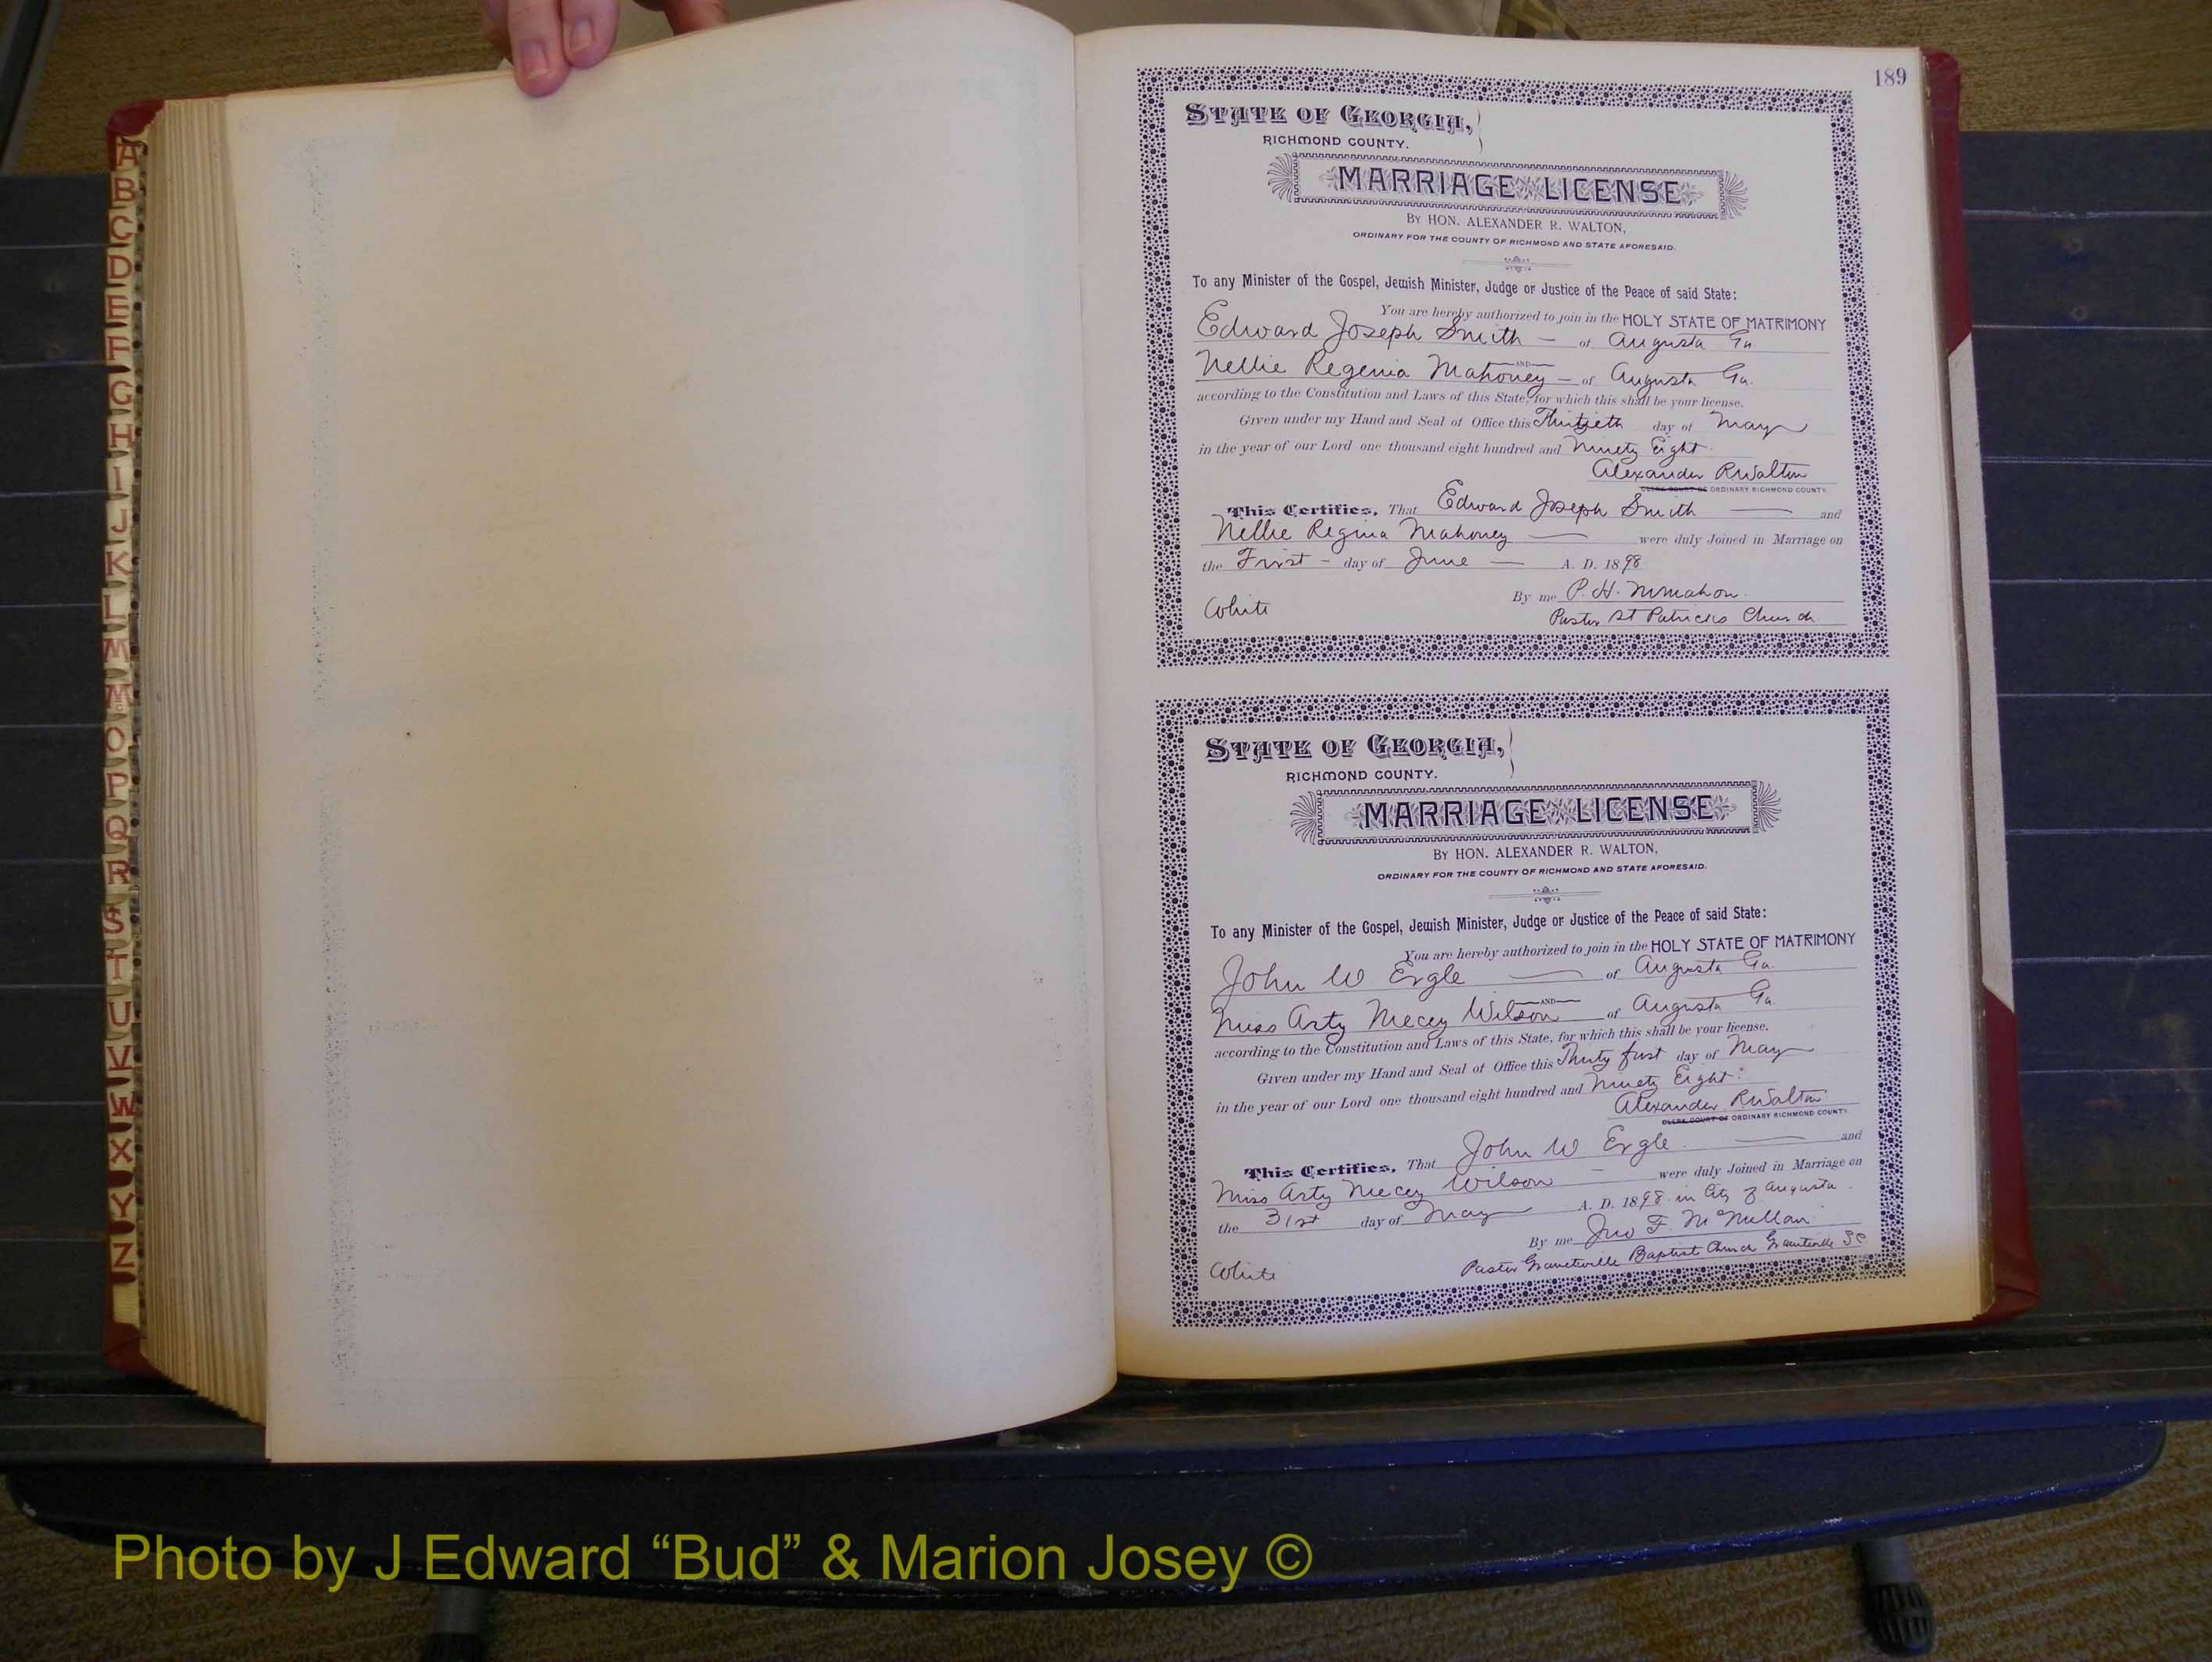 189
STATE OF GEORGIA,
RICHMOND COUNTY.
MARRIAGE LICENSE
BY HON. ALEXANDER R. WALTON,
ORDINARY FOR THE COUNTY OF RICHMOND AND STATE AFORESAID.
To any Minister of the Gospel, Jewish Minister, Judge or Justice of the Peace of said State:
You are hereby authorized to join in the HOLY STATE OF MATRIMONY
Edward Joseph Smith — of Augusta Ga
AND
Nellie Regenia Mahoney — of Augusta Ga.
according to the Constitution and Laws of this State, for which this shall be your license.
Given under my Hand and Seal of Office this Thirtieth day of May
in the year of our Lord one thousand eight hundred and Ninety Eight.
Alexander R Walton
CLERK COURT OF ORDINARY RICHMOND COUNTY.
This Certifies, That Edward Joseph Smith — and
Nellie Regina Mahoney — were duly Joined in Marriage on
the First — day of June — A. D. 1898
By me P. H. McMahon.
White
Pastor St Patricks Church
STATE OF GEORGIA,
RICHMOND COUNTY.
MARRIAGE LICENSE
BY HON. ALEXANDER R. WALTON,
ORDINARY FOR THE COUNTY OF RICHMOND AND STATE AFORESAID.
To any Minister of the Gospel, Jewish Minister, Judge or Justice of the Peace of said State:
You are hereby authorized to join in the HOLY STATE OF MATRIMONY
John W Ergle — of Augusta Ga.
AND
Miss Arty Mecey Wilson of Augusta Ga.
according to the Constitution and Laws of this State, for which this shall be your license.
Given under my Hand and Seal of Office this Thirty first day of May
in the year of our Lord one thousand eight hundred and Ninety Eight.
Alexander R Walton
CLERK COURT OF ORDINARY RICHMOND COUNTY.
This Certifies, That John W Ergle. — and
Miss Arty Mecey Wilson — were duly Joined in Marriage on
the 31st day of May A. D. 1898 in City of Augusta.
By me Jno F. McMillan
White
Pastor Graniteville Baptist Church Graniteville SC
A
B
C
D
E
F
G
H
I
J
K
L
M
Mc
O
P
Q
R
S
T
U
V
W
X
Y
Z
Photo by J Edward “Bud” & Marion Josey ©